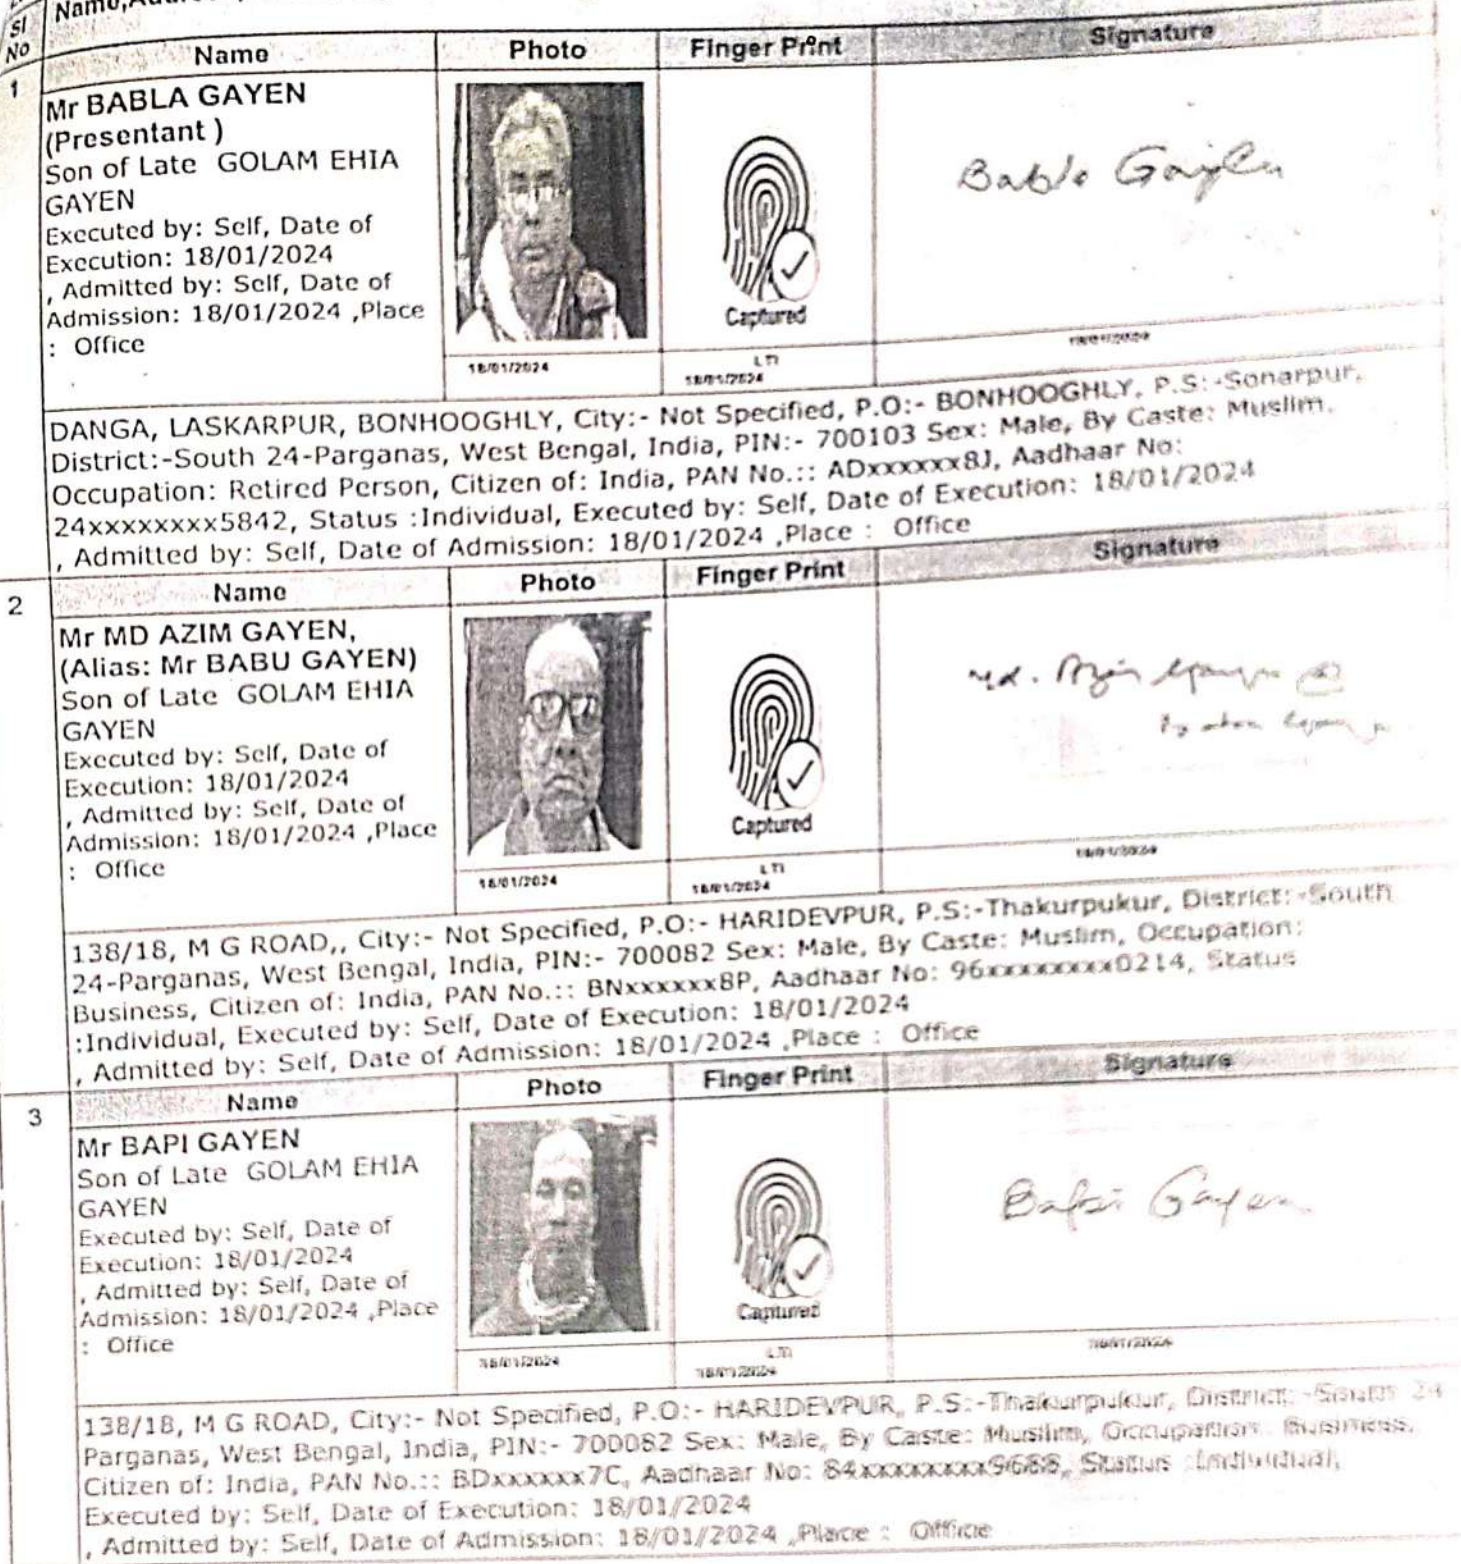 Sl
No
Name
Photo
Finger Print
Signature
1
Mr BABLA GAYEN
(Presentant )
Son of Late GOLAM EHIA
GAYEN
Executed by: Self, Date of
Execution: 18/01/2024
, Admitted by: Self, Date of
Admission: 18/01/2024 ,Place
: Office
18/01/2024
Captured
LTI
18/01/2024
Bablo Gayen
18/01/2024
DANGA, LASKARPUR, BONHOOGHLY, City:- Not Specified, P.O:- BONHOOGHLY, P.S:-Sonarpur,
District:-South 24-Parganas, West Bengal, India, PIN:- 700103 Sex: Male, By Caste: Muslim,
Occupation: Retired Person, Citizen of: India, PAN No.:: ADxxxxxx8J, Aadhaar No:
24xxxxxxxx5842, Status :Individual, Executed by: Self, Date of Execution: 18/01/2024
, Admitted by: Self, Date of Admission: 18/01/2024 ,Place : Office
2
Name
Photo
Finger Print
Signature
Mr MD AZIM GAYEN,
(Alias: Mr BABU GAYEN)
Son of Late GOLAM EHIA
GAYEN
Executed by: Self, Date of
Execution: 18/01/2024
, Admitted by: Self, Date of
Admission: 18/01/2024 ,Place
: Office
18/01/2024
Captured
LTI
18/01/2024
Md. Azim Gayen @
18/01/2024
138/18, M G ROAD,, City:- Not Specified, P.O:- HARIDEVPUR, P.S:-Thakurpukur, District:-South
24-Parganas, West Bengal, India, PIN:- 700082 Sex: Male, By Caste: Muslim, Occupation:
Business, Citizen of: India, PAN No.:: BNxxxxxx8P, Aadhaar No: 96xxxxxxxx0214, Status
:Individual, Executed by: Self, Date of Execution: 18/01/2024
, Admitted by: Self, Date of Admission: 18/01/2024 ,Place : Office
3
Name
Photo
Finger Print
Signature
Mr BAPI GAYEN
Son of Late GOLAM EHIA
GAYEN
Executed by: Self, Date of
Execution: 18/01/2024
, Admitted by: Self, Date of
Admission: 18/01/2024 ,Place
: Office
18/01/2024
Captured
LTI
18/01/2024
Bapi Gayen
18/01/2024
138/18, M G ROAD, City:- Not Specified, P.O:- HARIDEVPUR, P.S:-Thakurpukur, District:-South 24-
Parganas, West Bengal, India, PIN:- 700082 Sex: Male, By Caste: Muslim, Occupation: Business,
Citizen of: India, PAN No.:: BDxxxxxx7C, Aadhaar No: 84xxxxxxxx9688, Status :Individual,
Executed by: Self, Date of Execution: 18/01/2024
, Admitted by: Self, Date of Admission: 18/01/2024 ,Place : Office